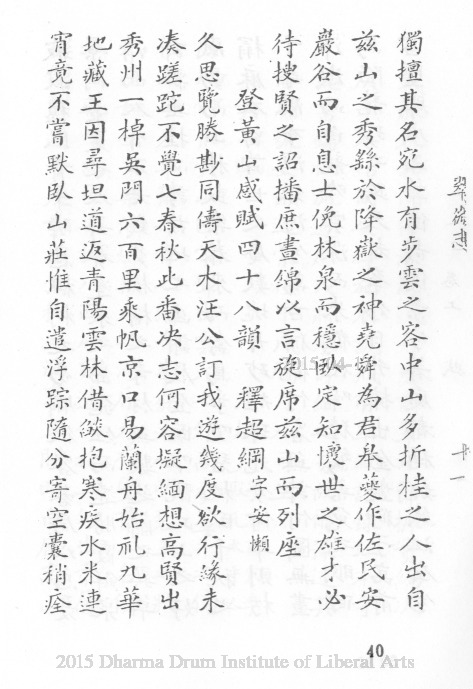 獨擅其名宛水有步雲之容中山多折桂之人出自
茲山之秀繇於降嶽之神堯舜為君皋夔作佐民安
巖谷而自息士俛林泉而穩臥定知懷世之雄才必
待搜賢之詔播庶晝錦以言旋席茲山而列座
登黃山感賦四十八韻 釋超綱字安懶
久思覽勝尠同儔天木汪公訂我遊幾度欲行緣未
凑蹉跎不覺七春秋此番决志何容擬緬想高賢出
秀州一棹吳門六百里乘帆京口易蘭舟始礼九華
地藏王因尋坦道返青陽雲林借
抱寒疾水米連
宵竟不嘗默臥山莊惟自遣浮踪隨分寄空囊稍痊
十一
40
2015 Dharma Drum Institute of Liberal Arts